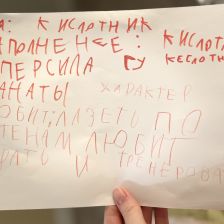 А: КИСЛОТНИК
ПОЛНЕНЕЕ: КИСЛОТ
ПЕРСИЛА ГУ КЕСЛОТН
КАНАТЫ ХАРАКТЕР
ЮБИТ; ЛАЗЕТЬ ПО
ТЕНАМ ЛЮБИТ
РАТЬ И ТРЕНЕРОВА